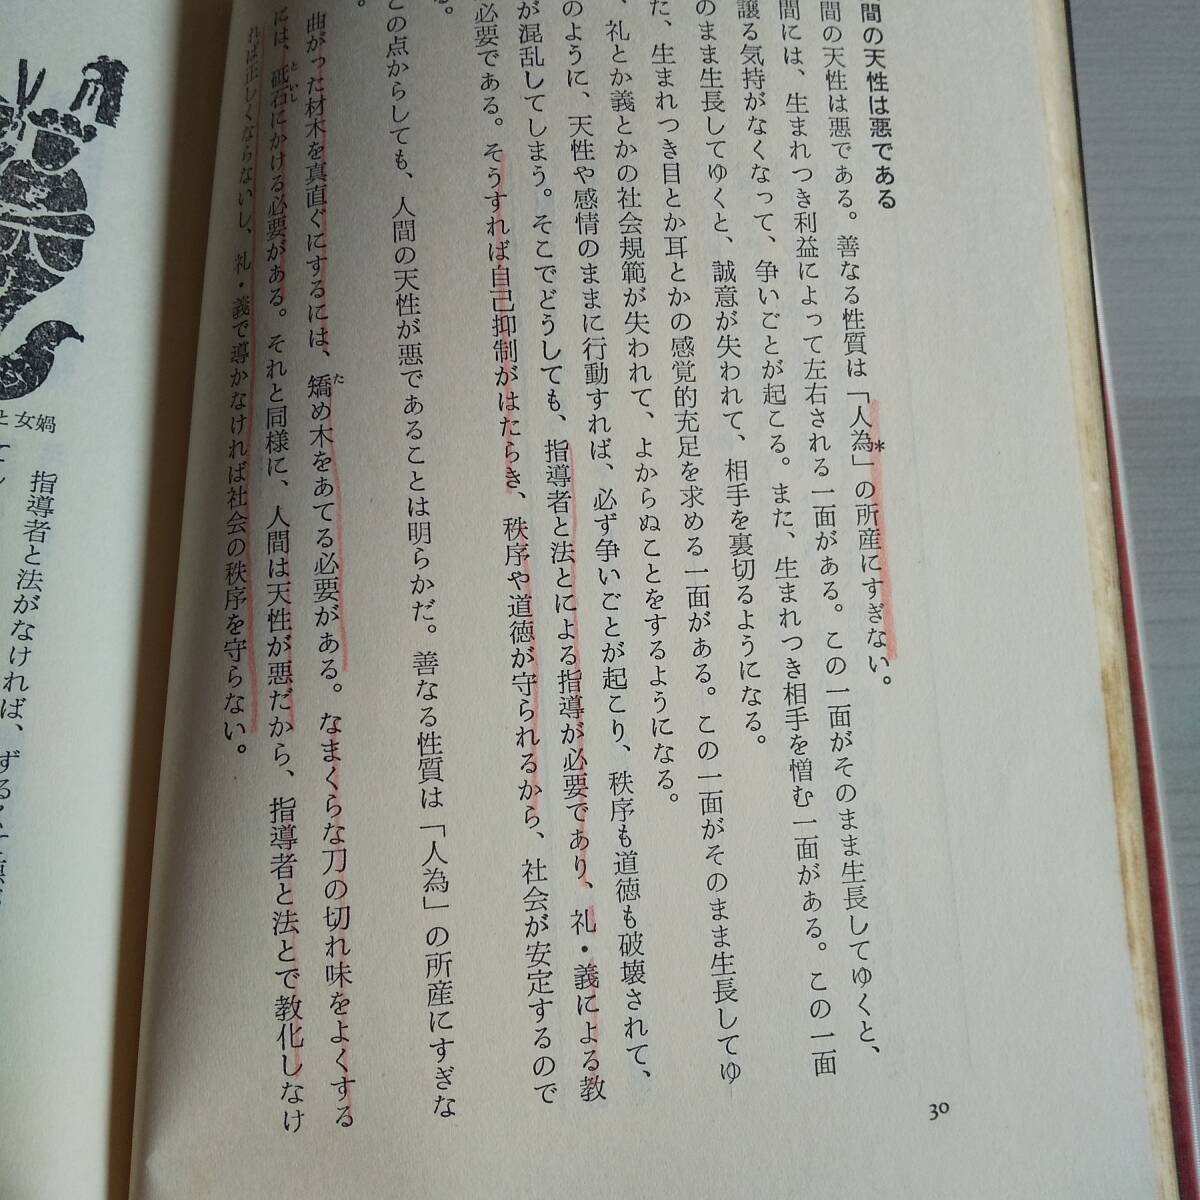 間の天性は悪である
間の天性は悪である。善なる性質は「人為*」の所産にすぎない。
間には、生まれつき利益によって左右される一面がある。この一面がそのまま生長してゆくと、
譲る気持がなくなって、争いごとが起こる。また、生まれつき相手を憎む一面がある。この一面
のまま生長してゆくと、誠意が失われて、相手を裏切るようになる。
た、生まれつき目とか耳とかの感覚的充足を求める一面がある。この一面がそのまま生長してゆ
、礼とか義とかの社会規範が失われて、よからぬことをするようになる。
のように、天性や感情のままに行動すれば、必ず争いごとが起こり、秩序も道徳も破壊されて、
が混乱してしまう。そこでどうしても、指導者と法とによる指導が必要であり、礼・義による教
必要である。そうすれば自己抑制がはたらき、秩序や道徳が守られるから、社会が安定するので
る。
この点からしても、人間の天性が悪であることは明らかだ。善なる性質は「人為」の所産にすぎな
。
曲がった材木を真直ぐにするには、矯め木をあてる必要がある。なまくらな刀の切れ味をよくする
には、砥石にかける必要がある。それと同様に、人間は天性が悪だから、指導者と法とで教化しなけ
れば正しくならないし、礼・義で導かなければ社会の秩序を守らない。
30
と女媧
指導者と法がなければ、ずるく